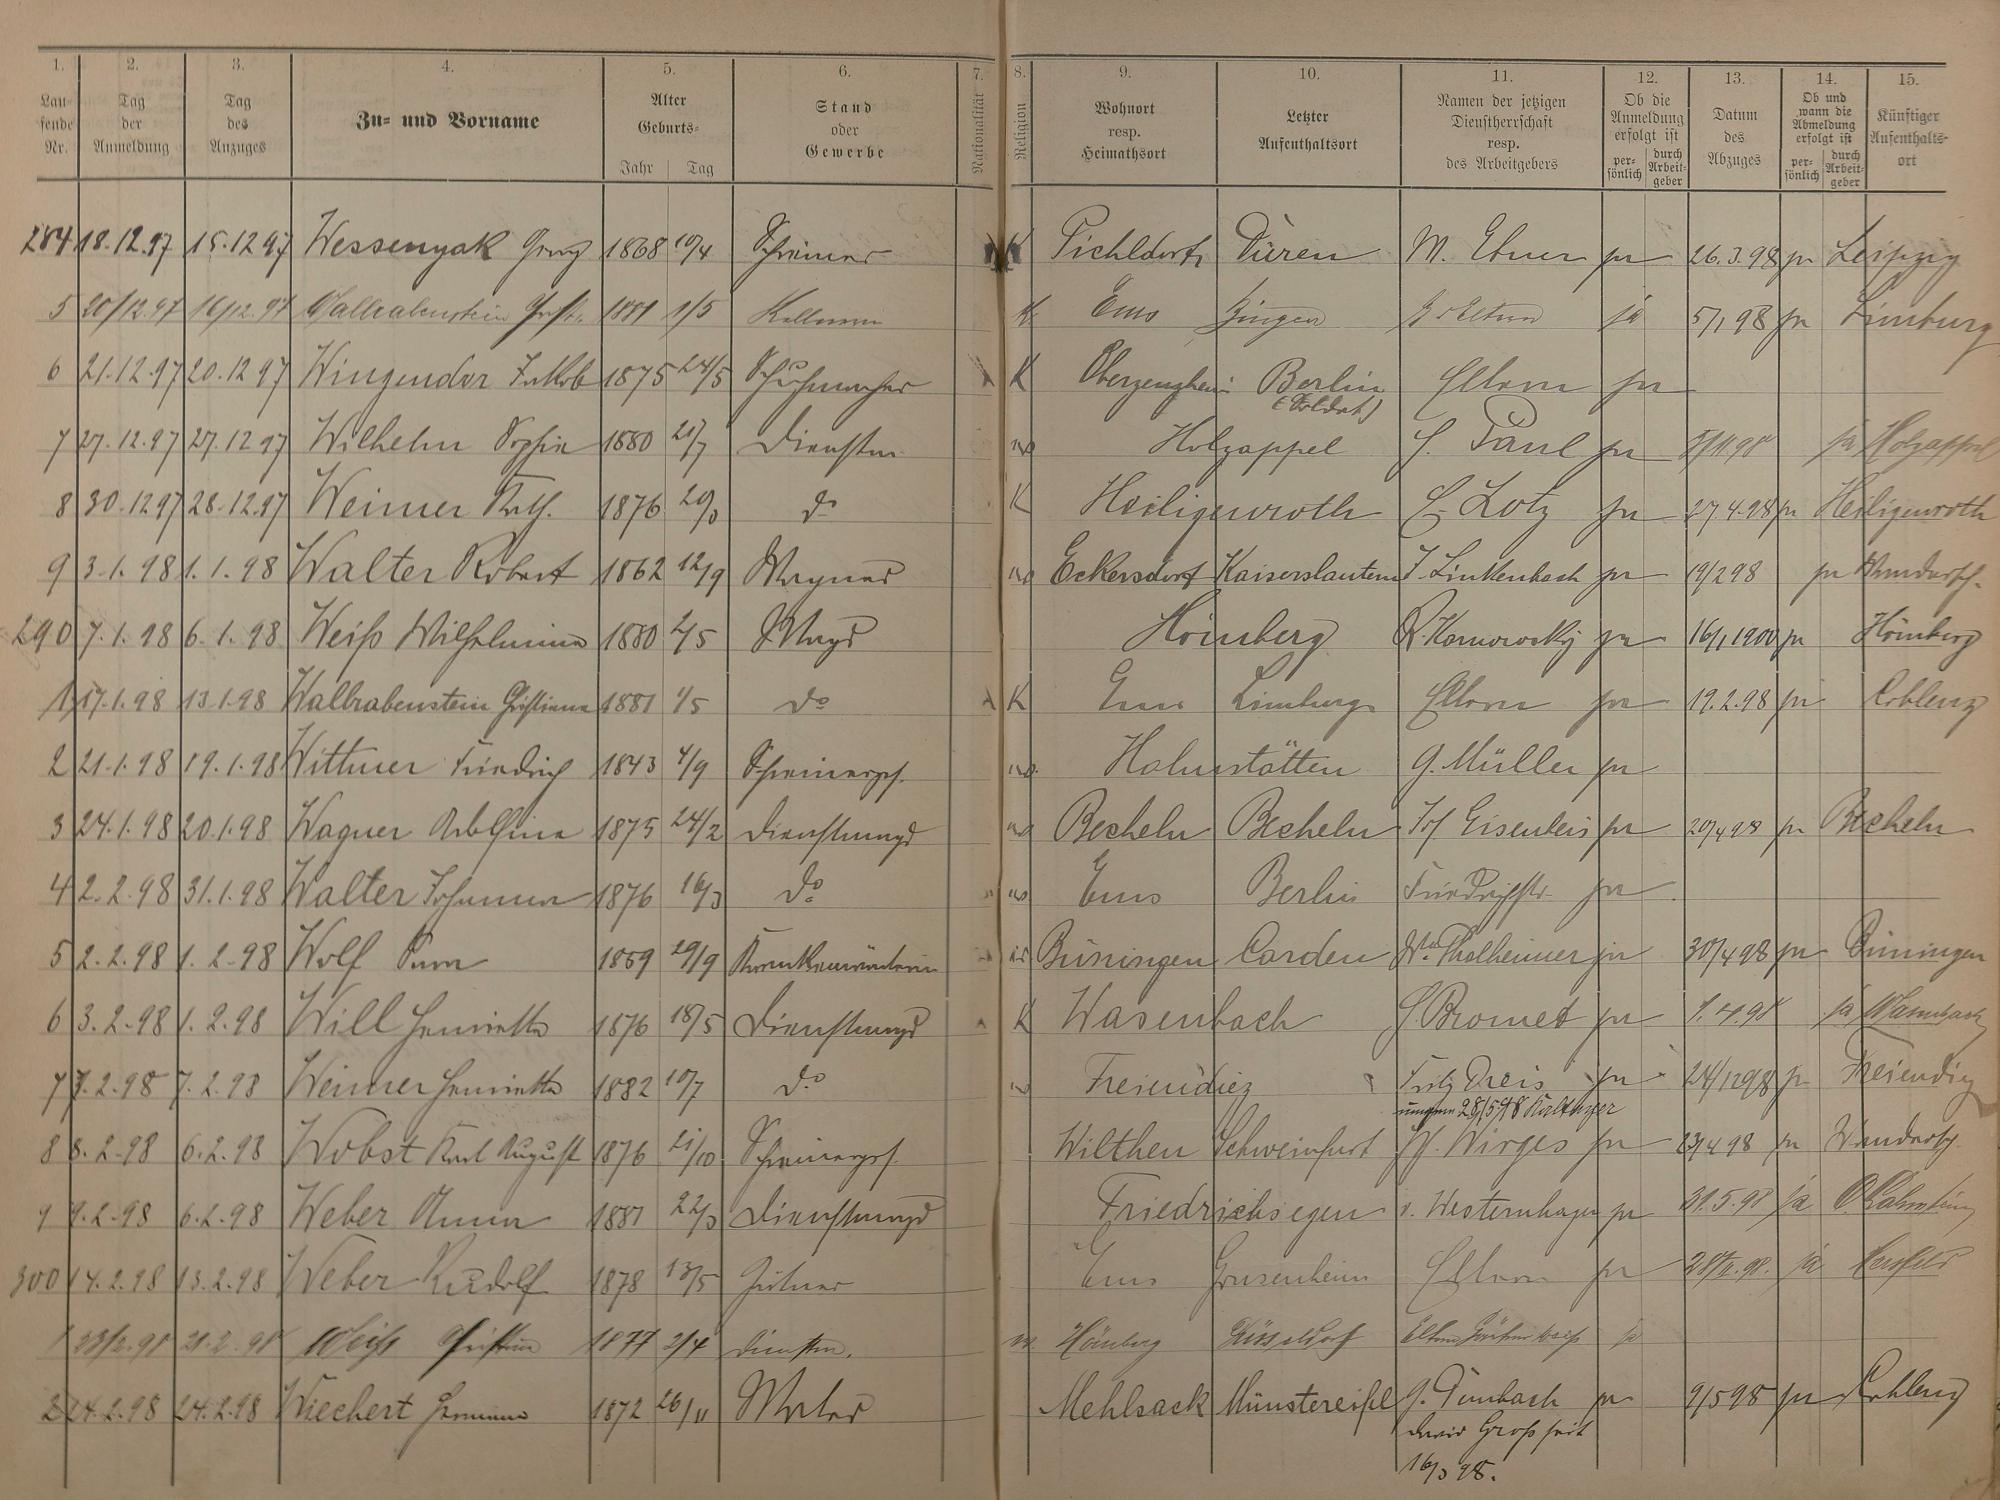 1. 2. 3. 4. 5. 6. 7. 8. 9. 10. 11. 12. 13. 14. 15.
Lau-fende Nr. Tag der Anmeldung Tag des Anzuges Zu- und Vorname Alter Geburts- Jahr Tag Stand oder Gewerbe Nationalität Religion Wohnort resp. Heimathsort Letzter Aufenthaltsort Namen der jetzigen Dienstherrschaft resp. des Arbeitgebers Ob die Anmeldung erfolgt ist per-sönlich durch Arbeit-geber Datum des Abzuges Ob und wann die Abmeldung erfolgt ist per-sönlich durch Arbeit-geber Künftiger Aufenthalts-ort
284 18.12.97 15.12 97 Wessenyak Georg 1868 10/4 Schreiner K Pichldorf Düren M. Ebner ja 26.3.98 ja Leipzig
5 20/12.97 16/12.97 Wallrabenstein 1881 1/5 Kellnerin K. Ems Bingen Eltern ja 5/1 98 ja Limburg
6 21.12.97 20.12 97 Wingender Jakob 1875 24/5 Schuhmacher K Oberzeuzheim Berlin Eltern ja
(Soldat)
7 27.12.97 27.12 97 Wilhelm Sophie 1880 21/7 Dienstm. Holzappel Paul ja ja Holzappel
8 30.12 97 28.12.97 Weimer Kath. 1876 20/3 do K Heiligenroth Lotz ja 27.4.98 ja Heiligenroth
9 3.1.98 1.1.98 Walter Robert 1862 12/9 Wagner Eckersdorf Kaiserslautern J. Linkenbach ja 19/2 98 ja Wandersch.
290 7.1.98 6.1.98 Weiß Wilhelmine 1880 2/5 Magd Hömberg R. Karnowsky ja 16/1 1900 ja Hömberg
1 17.1.98 13.1.98 Wallrabenstein Christiane 1881 1/5 do K Ems Limburg Eltern ja 19.2.98 ja Coblenz
2 21.1.98 19.1.98 Wittmer Friedrich 1843 4/9 Schreinergh. Hahnstätten G. Müller ja
3 24.1.98 20.1.98 Wagner Adolfine 1875 24/2 Dienstmagd Becheln Becheln Jos. Eisenbeis ja 20/4 98 ja Becheln
4 2.2.98 31.1.98 Walter Johanna 1876 16/3 do Ems Berlin Friedrichstr. ja
5 2.2.98 1.2.98 Wolf 1859 29/9 Krankenwärterin Büningen Carden Wwe. Thalheimer ja 30/4 98 ja Büningen
6 3.2.98 1.2.98 Will Henriette 1876 18/5 Dienstmagd K Wasenbach Bromet ja 1.4.98 ja Wasenbach
7 7.2.98 7.2.98 Weimer Henriette 1882 10/7 do Freiendiez Fritz Dreis ja 24/12 98 ja Freiendiez
28/5 98
8 8.2.98 6.2.98 Wobst Karl August 1876 21/10 Schreinergh. Wilthen Schweinfurt W. Wirges ja 23/4 98 ja Wandersch.
9 9.2.98 6.2.98 Weber Anna 1881 22/3 Dienstmagd Friedrichsegen v. Westernhagen ja 31.5.98 ja O.Lahnstein
300 14.2.98 13.2.98 Weber Rudolf 1878 13/5 Ems Grusenheim Eltern ja ja
1 23/2.98 21.2.98 Weiß Christine 1877 2/4 Dienstm. Hömberg Düsseldorf Eltern ja
2 24.2.98 24.2.98 Wiechert Hermann 1872 26/11 Maler Mehlsack Münstereifel G. Dumbach ja 9/5 98 ja Coblenz
David Groß seit
16/3 98.